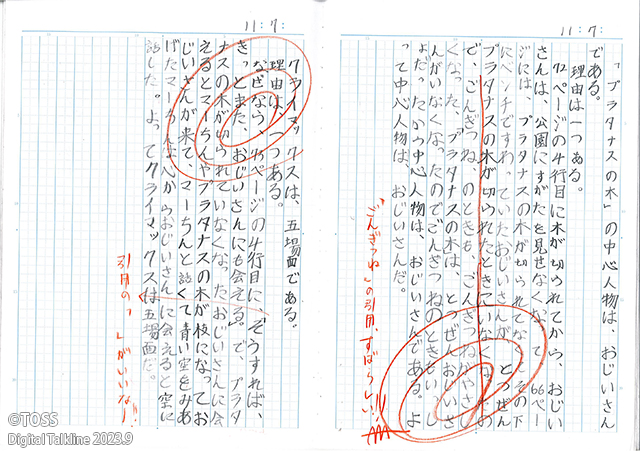 11:7:
「プラタナスの木」の中心人物は、おじいさん
である。
理由は一つある。
72ページの4行目に木が切られてから、おじい
さんは、公園にすがたを見せなくなって、66ペー
ジには、プラタナスの木が切られてなく、その下
にベンチですわっていたおじいさんが、とつぜん
プラタナスの木が切られたときにいなくなったの
で、ごんぎつね、のときも、ごんぎつねがやさし
くなった、プラタナスの木は、とつぜんおじいさ
んがいなくなったのでごんぎつねのときといっし
ょだ。だから中心人物は、おじいさんである。よ
って中心人物は、おじいさんだ。
「ごんぎつね」の引用、すばらしい!!
11:7:
クライマックスは、五場面である。
理由は、一つある。
なぜなら、75ページの4行目に「そうすれば、
きっとまた、おじいさんにも会える」で、プラタ
ナスの木が切られていなくなったおじいさんに会
えるとマーちんやプラタナスの木が枝になって お
じいさんが来て、マーちんと話して青い空をみあ
げたマーちんは心からおじいさんに会えると空に
話した。よってクライマックスは五場面だ。
引用の「 」がいいな!
©TOSS
Digital Talkline 2023.9